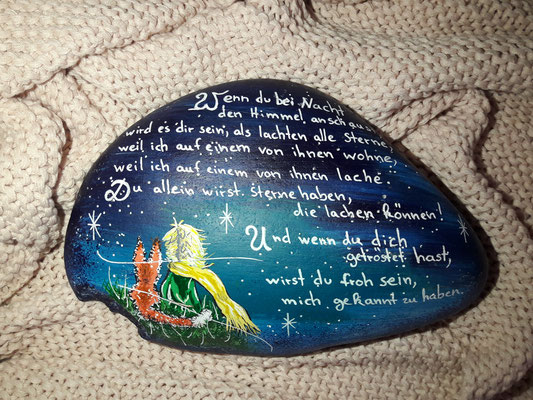 Wenn du bei Nacht
den Himmel anschaust,
wird es dir sein, als lachten alle Sterne,
weil ich auf einem von ihnen wohne,
weil ich auf einem von ihnen lache.
Du allein wirst Sterne haben,
die lachen können!
Und wenn du dich
getröstet hast,
wirst du froh sein,
mich gekannt zu haben.